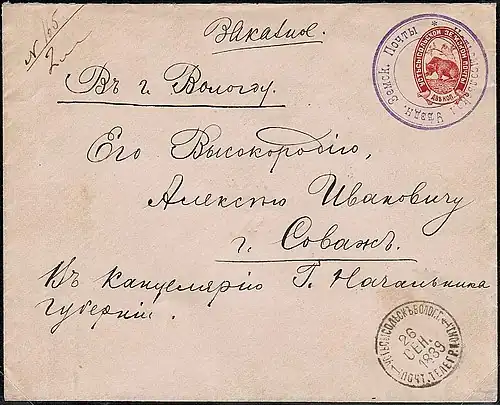 № 105
2 л
Заказное.
Въ г. Вологду.
Его Высокородію,
Алексѣю Ивановичу
г. Соважъ.
Въ Канцелярію Г. Начальника
Губерніи.
Уѣздн. Земск. Почты *
УСТЬСЫСОЛЬСКЪ ВОЛОГ.
26
СЕН.
1889
ПОЧТ. ТЕЛЕГР. К